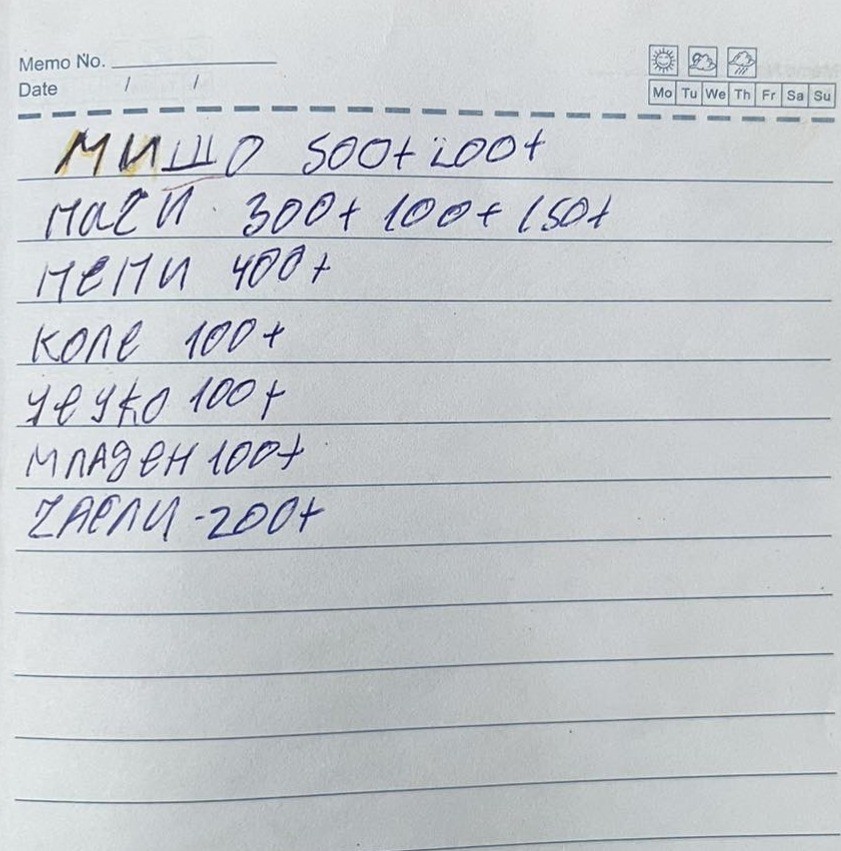 Memo No.
Date / /
Mo Tu We Th Fr Sa Su
МИШО 500+ 200+
НАСИ 300+ 100+ 150+
НЕПИ 400+
КОЛЕ 100+
100+
МЛАДЕН 100+
200+